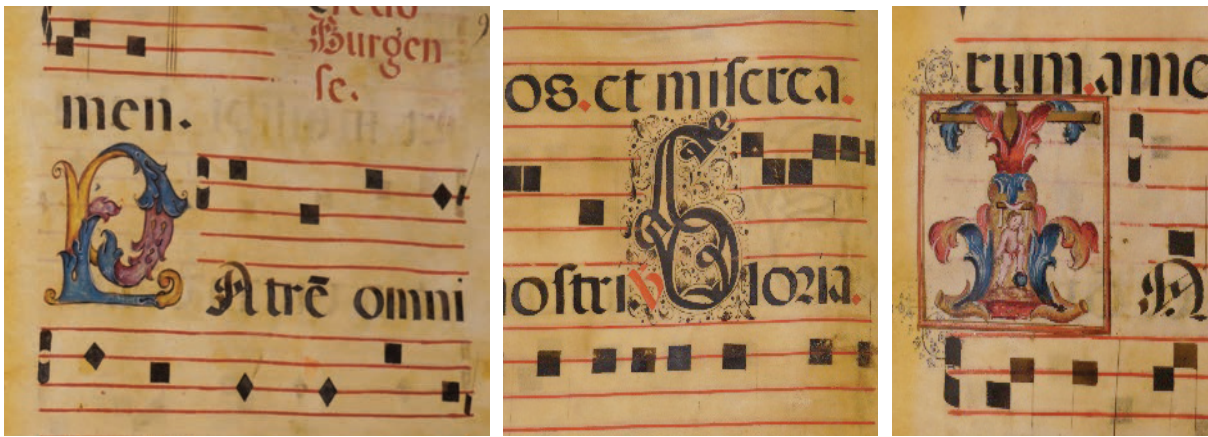 Burgen
se.
men.
PAtrē omni
os. et miserea.
nostri ℣ Gloria.
rum. ame